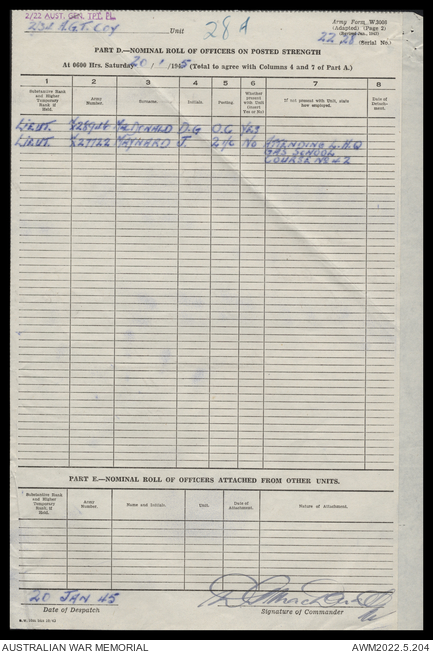 2/22 AUST. GEN. TPT. PL.
A.G.T. Coy
Unit
28A
Army Form W.3008
(Adapted) (Page 2)
22 28 (Serial No.)
PART D.—NOMINAL ROLL OF OFFICERS ON POSTED STRENGTH
At 0600 Hrs. Saturday 20 / 1 /1945 (Total to agree with Columns 4 and 7 of Part A.)
1 2 3 4 5 6 7 8
Substantive Rank and Higher Temporary Rank if Held. Army Number. Surname. Initials. Posting. Whether present with Unit Count Yes or No? If not present with Unit, state how employed. Date of Detachment.
LIEUT. McDONALD D.G O.C YES
LIEUT. MAYNARD J. 2i/c No ATTENDING L.H.Q
GAS SCHOOL
COURSE No 42
PART E.—NOMINAL ROLL OF OFFICERS ATTACHED FROM OTHER UNITS.
Substantive Rank and Higher Temporary Rank, if Held. Army Number. Name and Initials. Unit. Date of Attachment. Nature of Attachment.
20 JAN 45
Date of Despatch
Signature of Commander
AUSTRALIAN WAR MEMORIAL
AWM2022.5.204